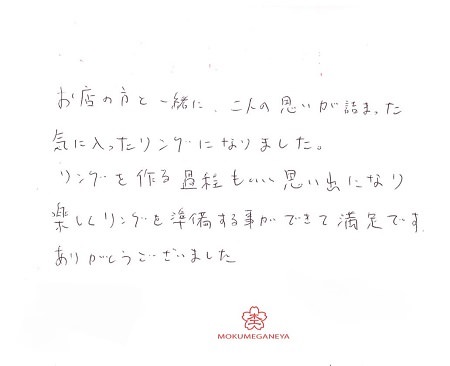 お店の方と一緒に、二人の思いが詰まった
気に入ったリングになりました。
リングを作る過程もいい思い出になり
楽しくリングを準備する事ができて満足です
ありがとうございました
MOKUMEGANEYA